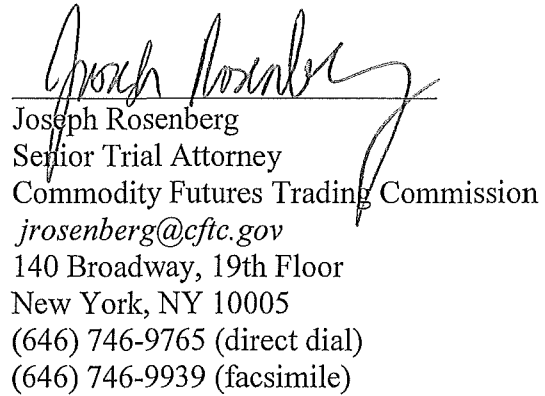 Joseph Rosenberg
Joseph Rosenberg
Senior Trial Attorney
Commodity Futures Trading Commission
jrosenberg@cftc.gov
140 Broadway, 19th Floor
New York, NY 10005
(646) 746-9765 (direct dial)
(646) 746-9939 (facsimile)